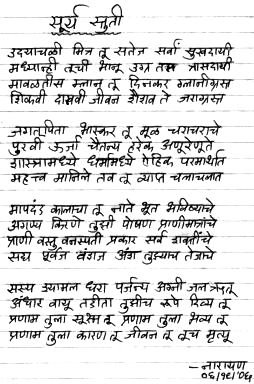 सूर्य स्तुती
उदयाचळी मित्र तू सतेज सर्वा सुखदायी
मध्यान्ही तूची भानू उग्र तप्त त्रासदायी
मावळतीस म्लान तू दिनकर ग्लानीग्रस्त
शिकवी दासवी जीवन शैशव ते जराग्रस्त
जगतपिता भास्कर तू मूळ चराचराचे
पुरवी ऊर्जा चैतन्य हरेक अणूरेणूत
शास्त्रामध्ये धर्मामध्ये ऐहिक परमार्थात
महत्त्व मानिले तव तू व्याप्त चलाचलात
मापदंड काळाचा तू नाते भूत भविष्याचे
अगण्य किरणे तुझी पोषण प्राणीमात्रांचे
प्राणी वस्तु वनस्पती प्रकार सर्व शक्तींचे
सध्य पूर्वज वंशज अंग तुझ्याच तेजाचे
सस्य श्यामल धरा पर्जन्य अग्नी जल ऋतू
अंधार वायू तडीता तुझीच रूपे दिव्य तू
प्रणाम तुला सूक्ष्म तू प्रणाम तुला भव्य तू
प्रणाम तुला कारण तू जीवन तू तूच मृत्यू
- नारायण
०६/१८/०६